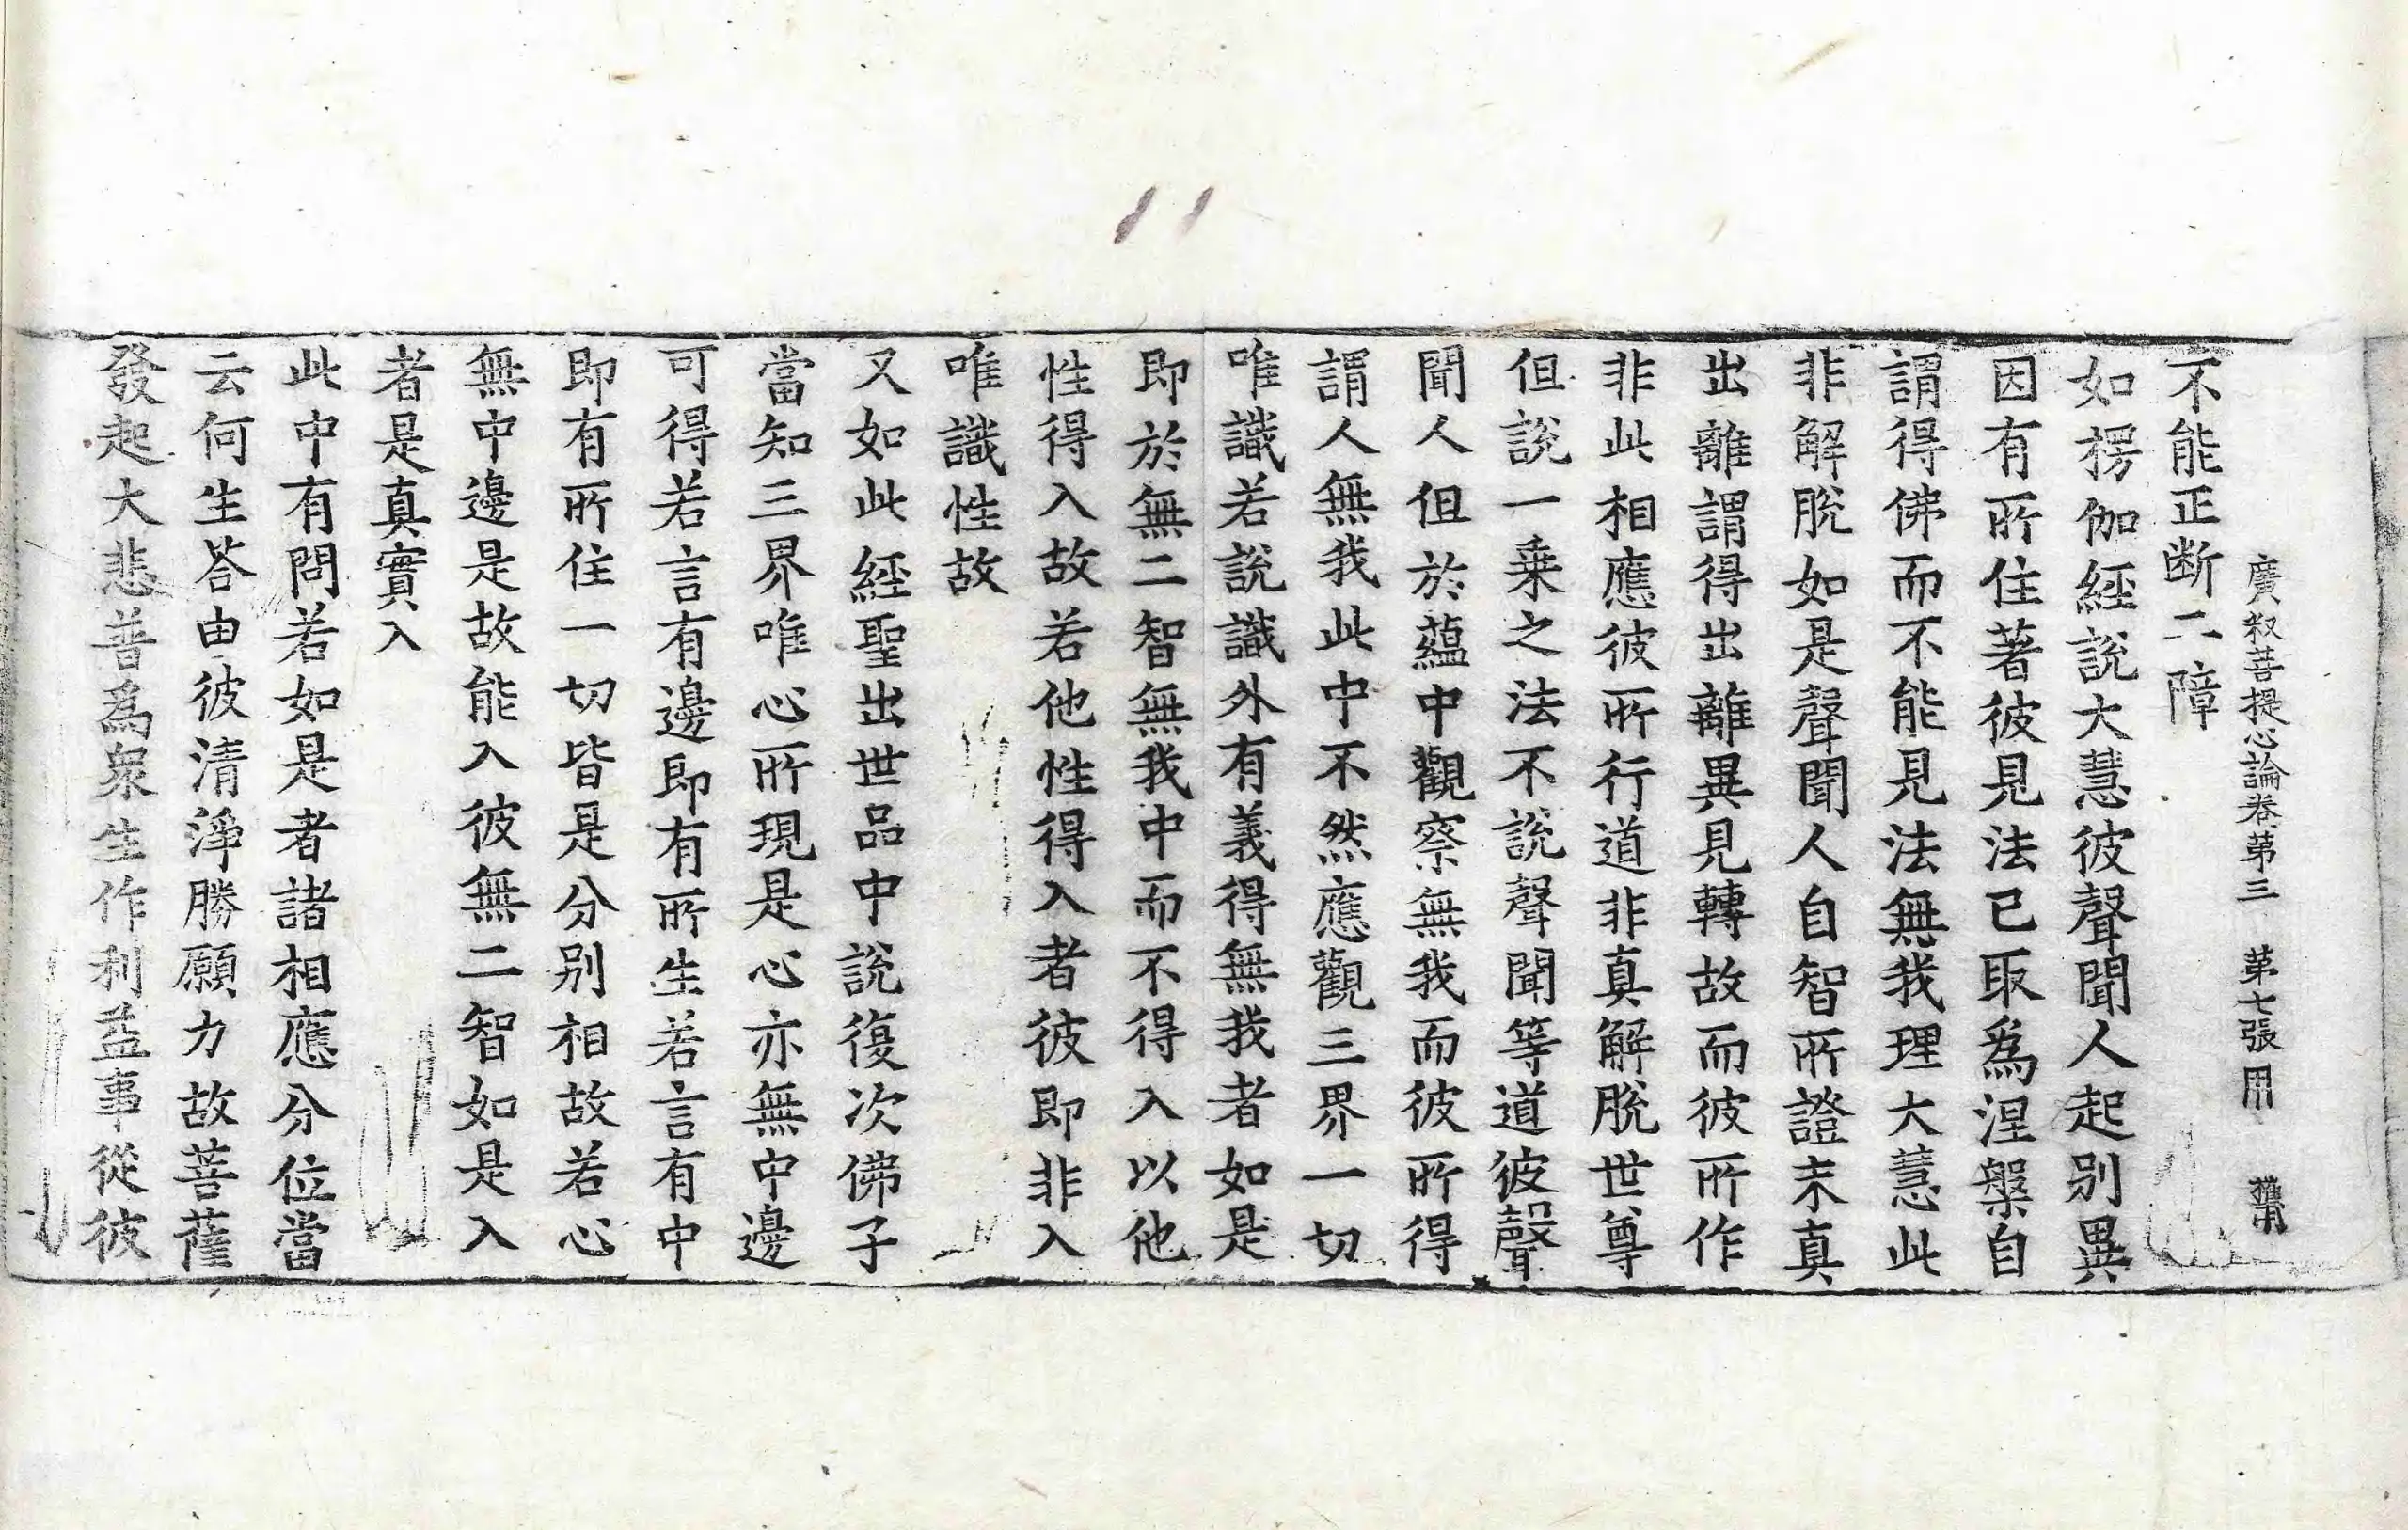 廣释菩提心論卷第三 第七張 用
不能正断二障
如楞伽經說大慧彼聲聞人起别異
因有所住著彼見法已取爲涅槃自
謂得佛而不能見法無我理大慧此
非解脫如是聲聞人自智所證未真
出離謂得出離異見轉故而彼所作
非此相應彼所行道非真解脫世尊
但說一乗之法不說聲聞等道彼聲
聞人但於蘊中觀察無我而彼所得
謂人無我此中不然應觀三界一切
唯識若說識外有義得無我者如是
即於無二智無我中而不得入以他
性得入故若他性得入者彼即非入
唯識性故
又如此經聖出世品中說復次佛子
當知三界唯心所現是心亦無中邊
可得若言有邊即有所生若言有中
即有所住一切皆是分别相故若心
無中邊是故能入彼無二智如是入
者是真實入
此中有問若如是者諸相應分位當
云何生荅由彼清淨勝願力故菩薩
發起大悲普爲衆生作利益事從彼
11